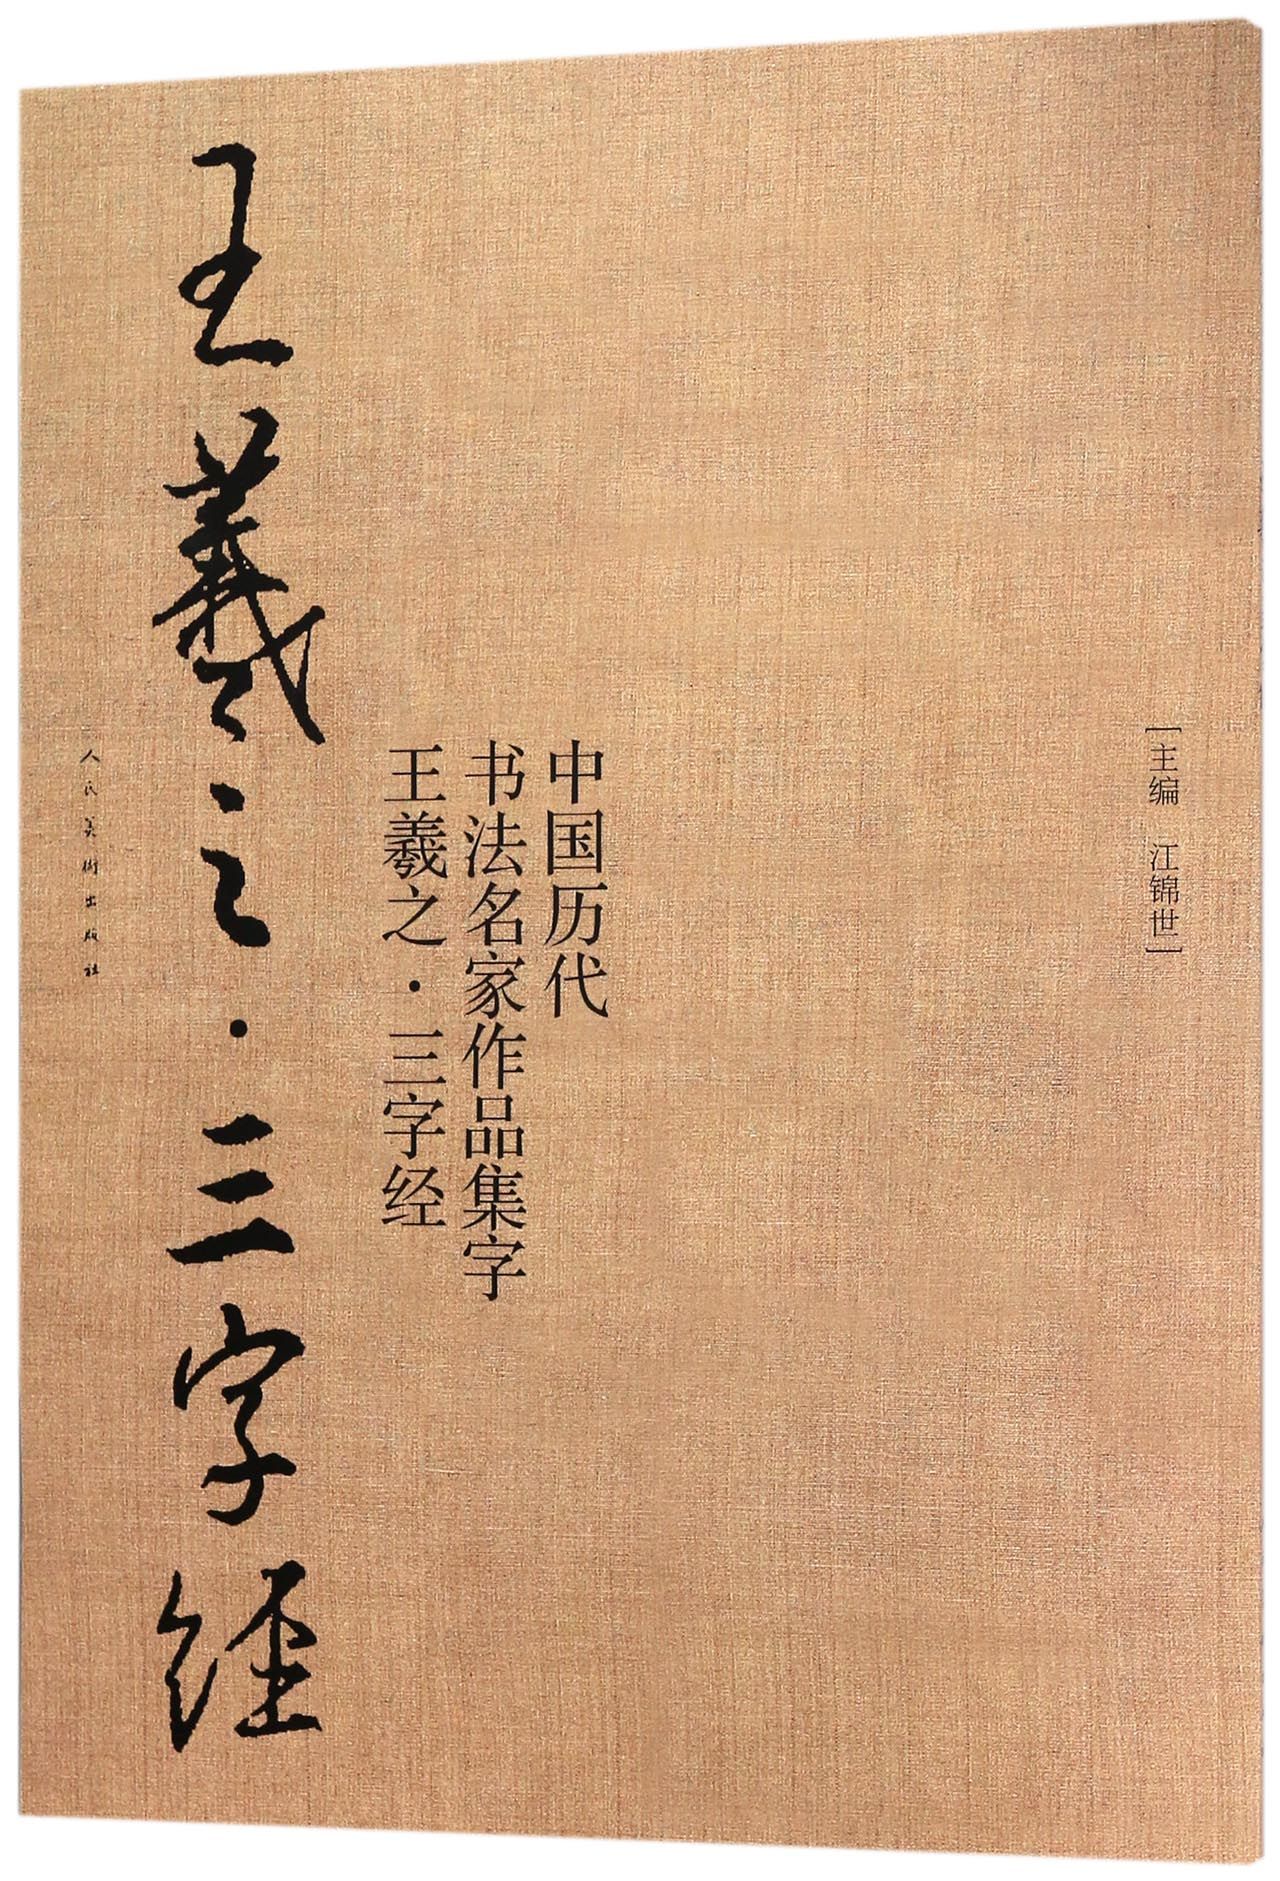 [主编 江锦世]
中国历代
书法名家作品集字
王羲之·三字经
王羲之·三字经
人民美術出版社